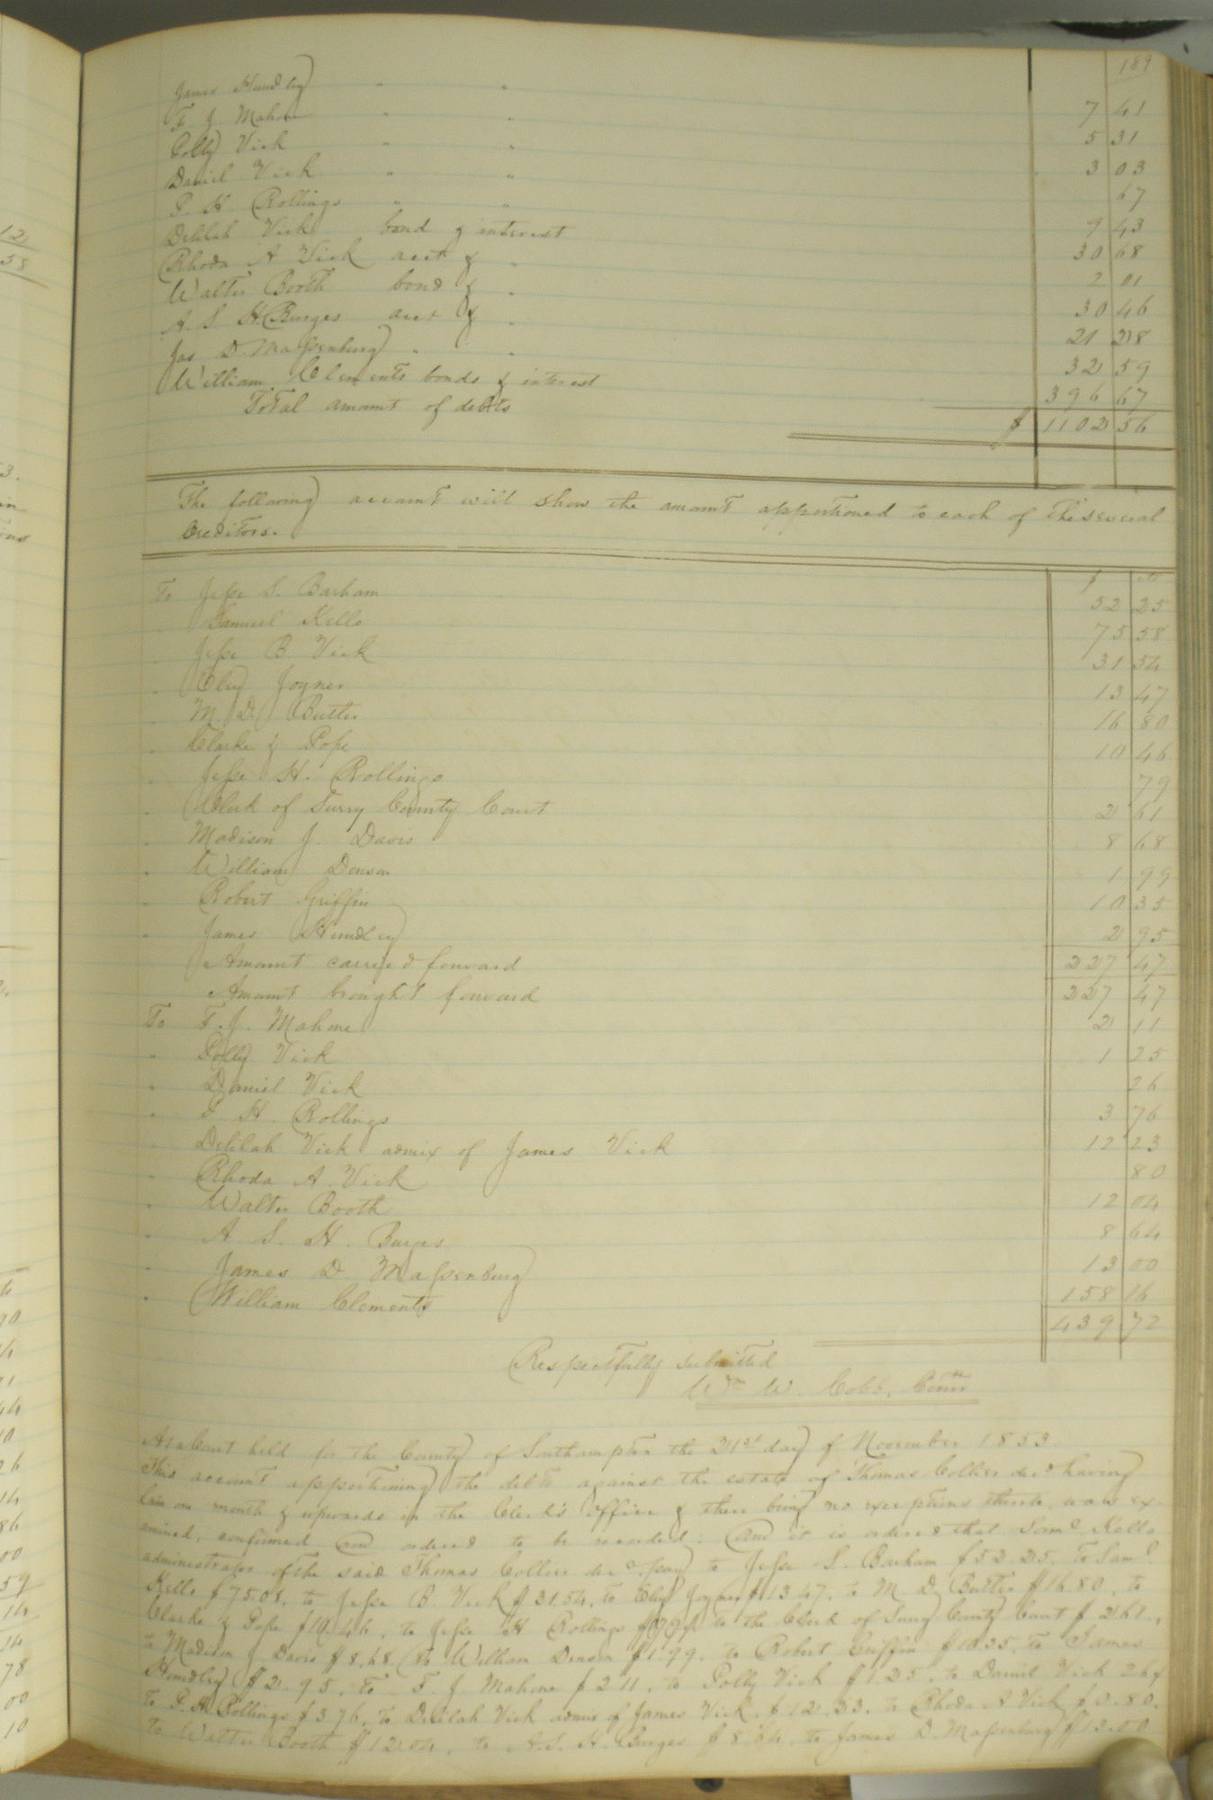 189
James Hundley " " 7 41
F J Mahone " " 5 31
Polly Vick " " 3 03
Daniel Vick " " 67
P. H Rollings " " 9 43
Delilah Vick bond & interest 30 68
Rhoda A Vick acct & " 2 01
Walter Booth bond & " 30 46
A. S. H Burges acct & " 21 28
Jas D. Massenburg " " 32 59
William Clements bonds & interest 396 67
Total amount of debts $ 1102 56
The following account will show the amount apportioned to each of the several
creditors.
$ cts
To Jesse S. Barham 52 25
" Samuel Kello 75 58
" Jesse B Vick 31 54
" Eley Joyner 13 47
" M. D. Butler 16 80
" Clarke & Pope 10 46
" Jesse H. Rollings 79
" Clerk of Surry County Court 2 61
" Madison J. Davis 8 68
" William Denson 1 99
" Robert Griffin 10 35
" James Hundley 2 95
Amount carried forward 227 47
Amount brought forward 227 47
To F. J. Mahone 2 11
" Polly Vick 1 25
" Daniel Vick 26
" P H Rollings 3 76
Delilah Vick admix of James Vick 12 23
" Rhoda A. Vick 80
" Walter Booth 12 04
" A S. H. Burges 8 64
" James D Massenburg 13 00
" William Clements 158 16
439 72
Respectfully submitted
Wm W. Cobb, Comr
At a Court held for the County of Southampton the 21st day of November 1853
This account apportioning the debts against the estate of Thomas Collier decd having
lain one month & upwards in the Clerk's office & there being no exceptions thereto, was ex-
amined, confirmed and ordered to be recorded: And it is ordered that Saml Kello
administrator of the said Thomas Collier decd pay to Jesse S. Barham $52.25, to Saml
Kello $75.58, to Jesse B. Vick $31.54, to Eley Joyner $13.47, to M D. Butler $16.80, to
Clarke & Pope $10.46, to Jesse H Rollings 79¢ to the Clerk of Surry County Court $2.61,
to Madison J Davis $8.68, to William Denson $1.99, to Robert Griffin $10.35, to James
Hundley $2.95, to F. J Mahone $2.11, to Polly Vick $1.25, to Daniel Vick 26¢
to P. H Rollings $3.76, to Delilah Vick admx of James Vick $12.23, to Rhoda A Vick $0.80,
to Walter Booth $12.04, to A. S. H. Burges $8.64 to James D. Massenburg $13.00